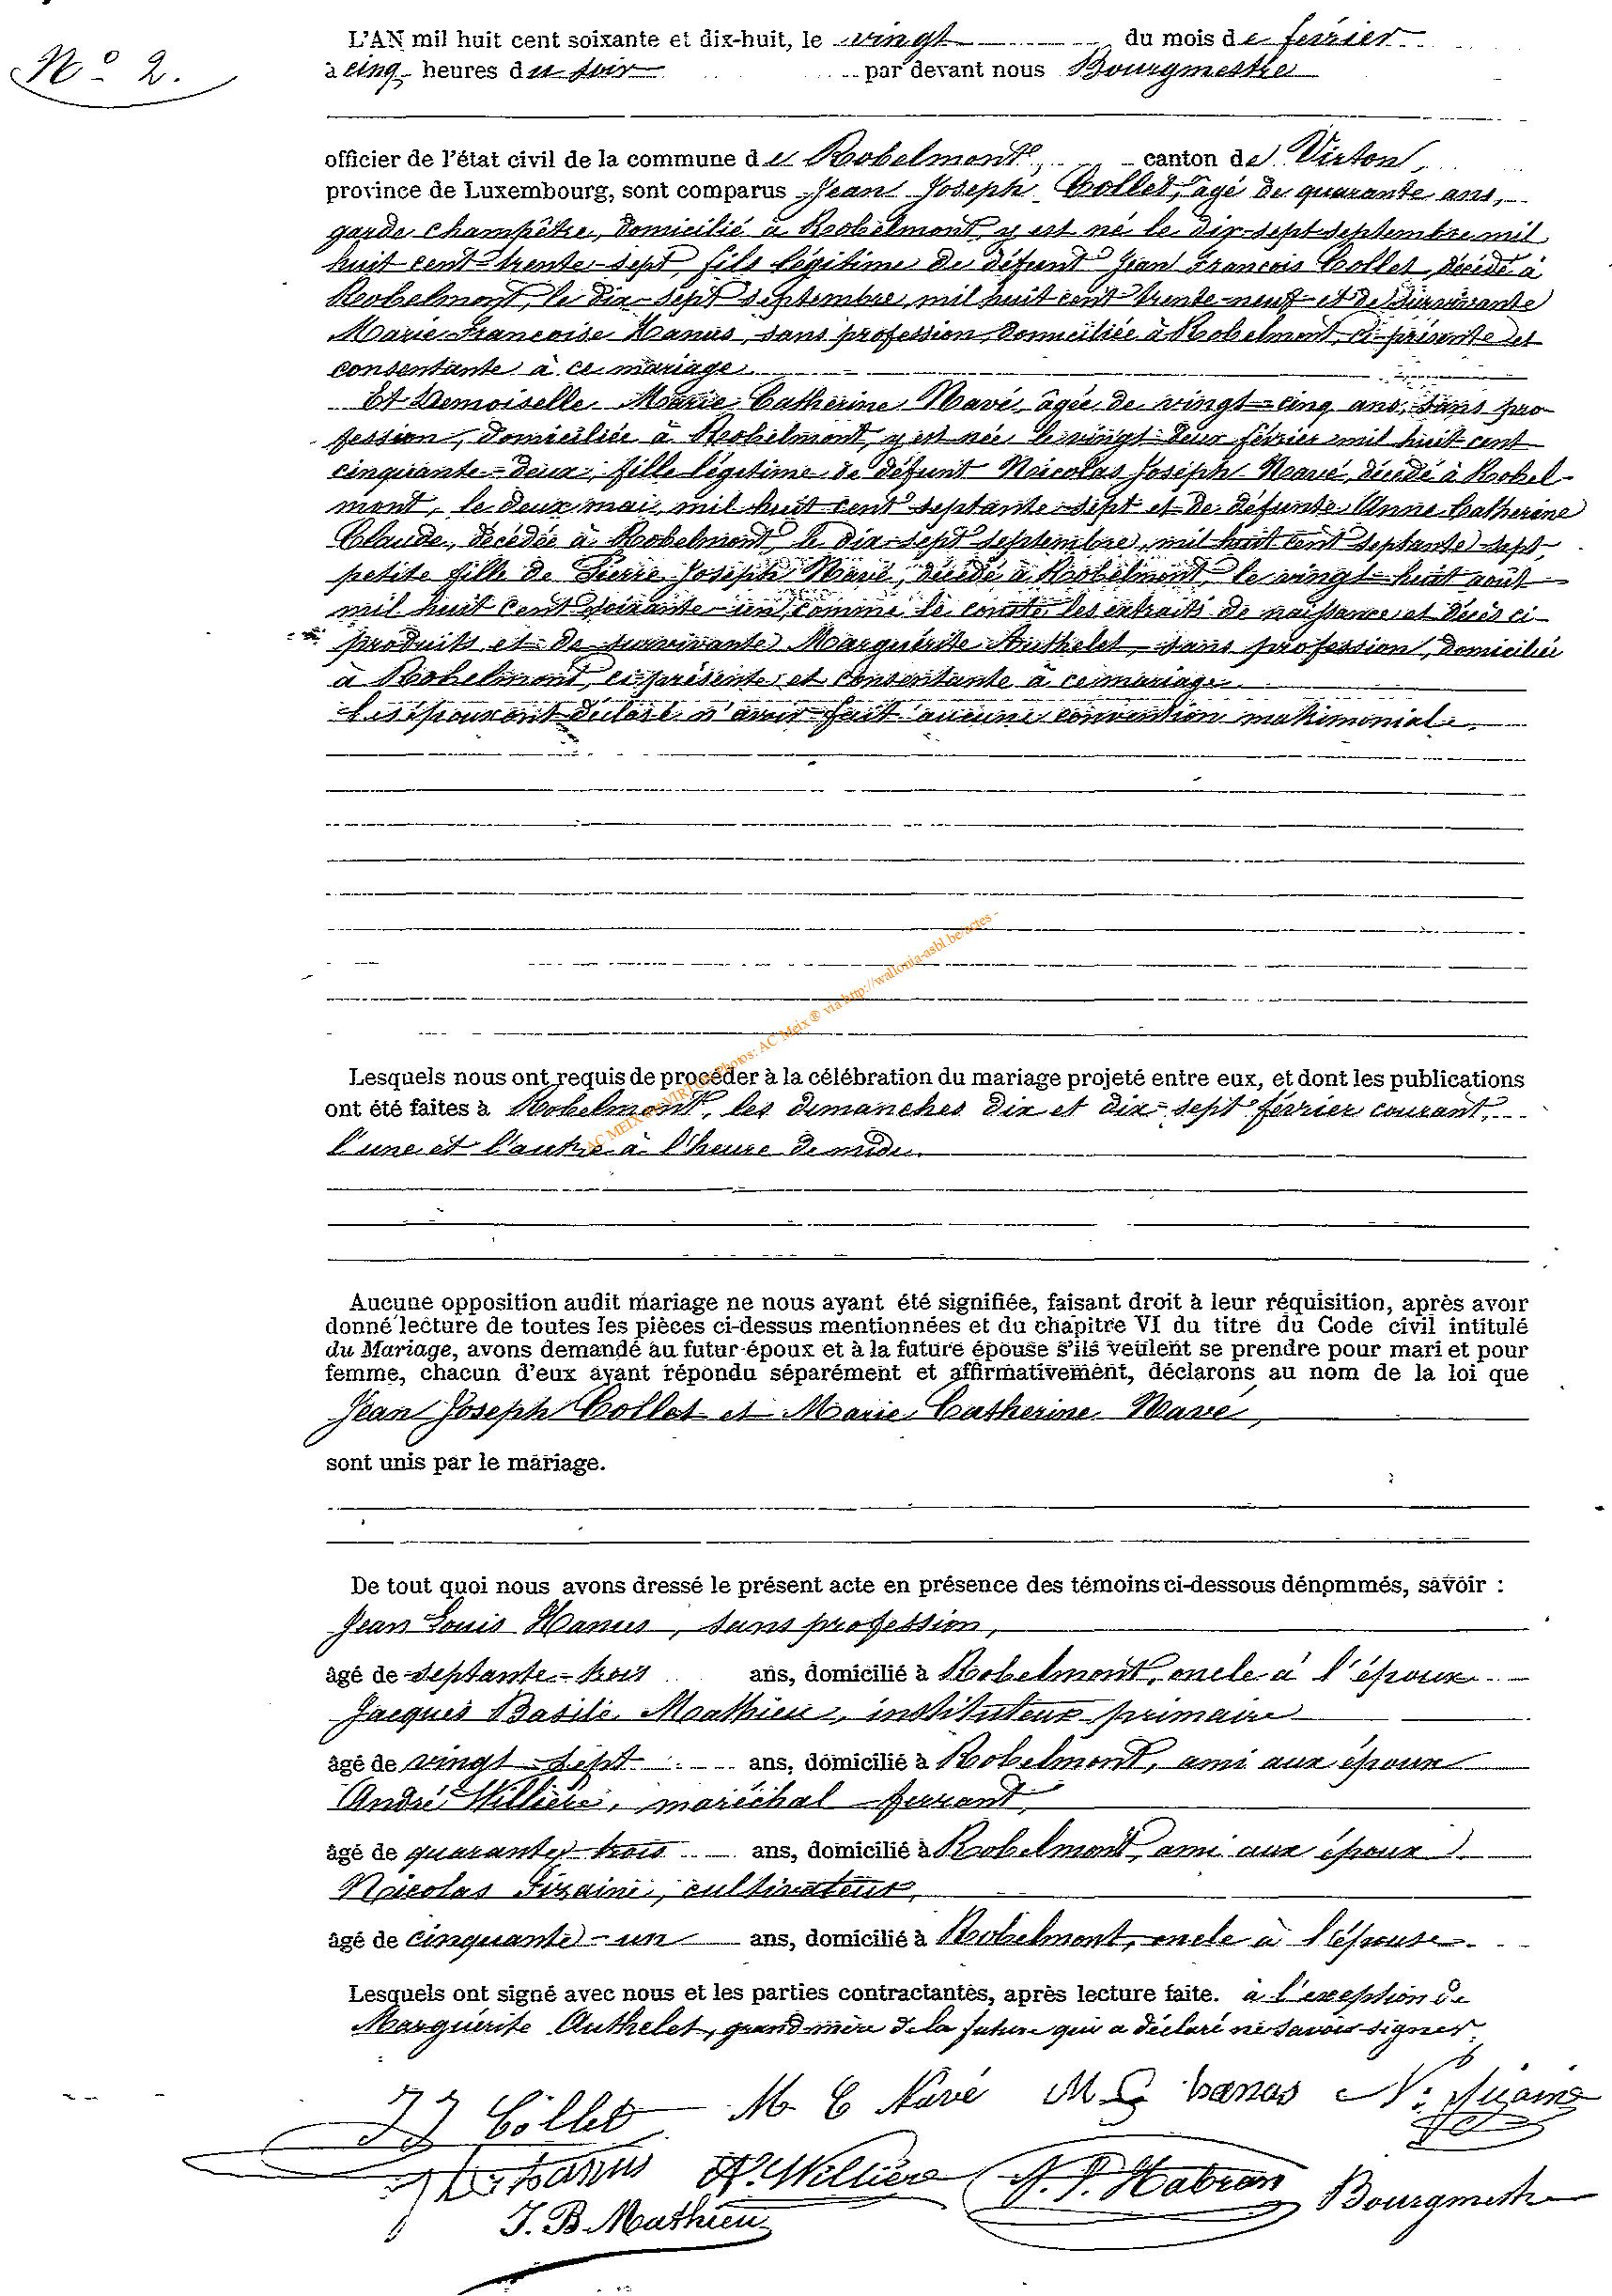 N° 2.
L'AN mil huit cent soixante et dix-huit, le vingt du mois de février
à cinq heures du soir par devant nous Bourgmestre
officier de l'état civil de la commune de Robelmont, canton de Virton,
province de Luxembourg, sont comparus Jean Joseph Collet, âgé de quarante ans,
garde champêtre, domicilié à Robelmont, y est né le dix-sept septembre mil
huit cent trente-sept, fils légitime de défunt Jean François Collet, décédé à
Robelmont, le dix-sept septembre mil huit cent trente-neuf et de survivante
Marie Françoise Hanus, sans profession, domiciliée à Robelmont, ci-présente et
consentante à ce mariage.
Et Demoiselle Marie Catherine Navé, âgée de vingt-cinq ans, sans pro-
fession, domiciliée à Robelmont, y est née le vingt-deux février mil huit cent
cinquante-deux, fille légitime de défunt Nicolas Joseph Navé, décédé à Robel-
mont, le deux mai mil huit cent septante-sept et de défunte Anne Catherine
Claude, décédée à Robelmont, le dix-sept septembre mil huit cent septante-sept
petite fille de Pierre Joseph Navé, décédé à Robelmont, le vingt-huit août
mil huit cent soixante-un, comme le constate les extraits de naissance et décès ci-
produits et de survivante Marguérite Authelet, sans profession, domiciliée
à Robelmont, ci-présente et consentante à ce mariage.
Les époux ont déclaré n'avoir fait aucune convention matrimoniale.
Lesquels nous ont requis de procéder à la célébration du mariage projeté entre eux, et dont les publications
ont été faites à Robelmont, les dimanches dix et dix-sept février courant,
l'une et l'autre à l'heure de midi.
AC MEIX dvt VIRTON Photos: AC Meix ® via http://wallonia-asbl.be/actes -
Aucune opposition audit mariage ne nous ayant été signifiée, faisant droit à leur réquisition, après avoir
donné lecture de toutes les pièces ci-dessus mentionnées et du chapitre VI du titre du Code civil intitulé
du Mariage, avons demandé au futur époux et à la future épouse s'ils veulent se prendre pour mari et pour
femme, chacun d'eux ayant répondu séparément et affirmativement, déclarons au nom de la loi que
Jean Joseph Collet et Marie Catherine Navé,
sont unis par le mariage.
De tout quoi nous avons dressé le présent acte en présence des témoins ci-dessous dénommés, savoir :
Jean Louis Hanus, sans profession,
âgé de septante-trois ans, domicilié à Robelmont, oncle à l'époux
Jacques Basile Mathieu, instituteur primaire
âgé de vingt-sept ans, domicilié à Robelmont, ami aux époux
André Willière, maréchal ferrant,
âgé de quarante-trois ans, domicilié à Robelmont, ami aux époux
Nicolas Gizaine, cultivateur,
âgé de cinquante-un ans, domicilié à Robelmont, oncle à l'épouse.
Lesquels ont signé avec nous et les parties contractantes, après lecture faite. à l'exception de
Marguérite Authelet, grand-mère de la future qui a déclaré ne savoir signer.
J J Collet M C Navé M F hanus N. Gizaine
J L hanus A. Willière N. J. Habran Bourgmestre
J. B. Mathieu